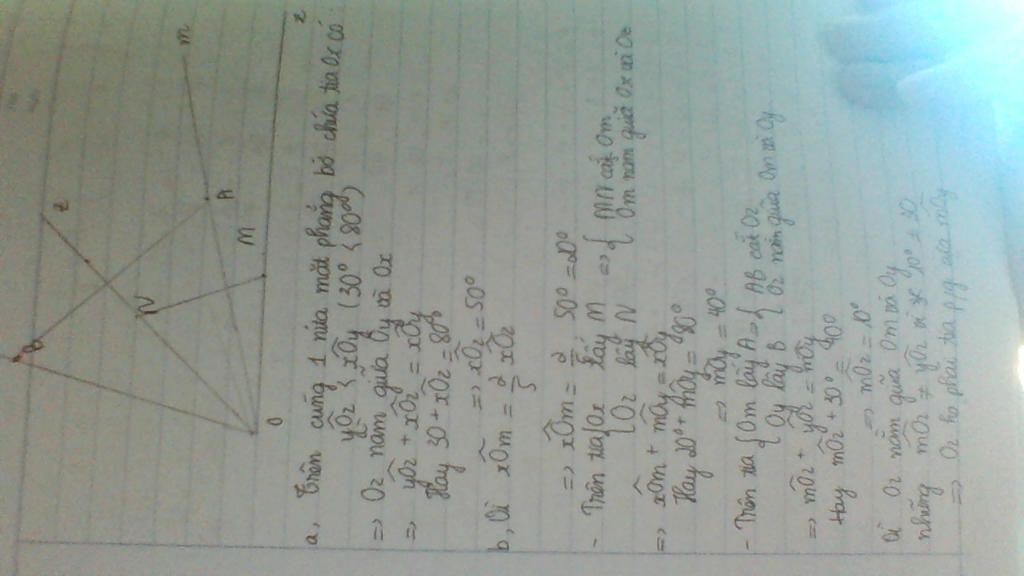 y
B
z
N
m
A
M
O
x
a, Trên cùng 1 nửa mặt phẳng bờ chứa tia Ox có:
yOz < xOy (30° < 80°)
=> Oz nằm giữa Oy và Ox
=> yOz + xOz = xOy
Hay 30 + xOz = 80°
=> xOz = 50°
b, Vì xOm = 2/5 xOz
=> xOm = 2/5 50° = 20°
- Trên tia { Ox lấy M => { MN cắt Om
Oz lấy N Om nằm giữa Ox và Oz
=> xOm + mOy = xOy
Hay 20° + mOy = 80°
=> mOy = 40°
- Trên tia { Om lấy A => { AB cắt Oz
Oy lấy B Oz nằm giữa Om và Oy
=> mOz + yOz = mOy
Hay mOz + 30° = 40°
=> mOz = 10°
Vì Oz nằm giữa Om và Oy
nhưng mOz ≠ yOz vì 10° ≠ 30
=> Oz ko phải tia p/g của mOy